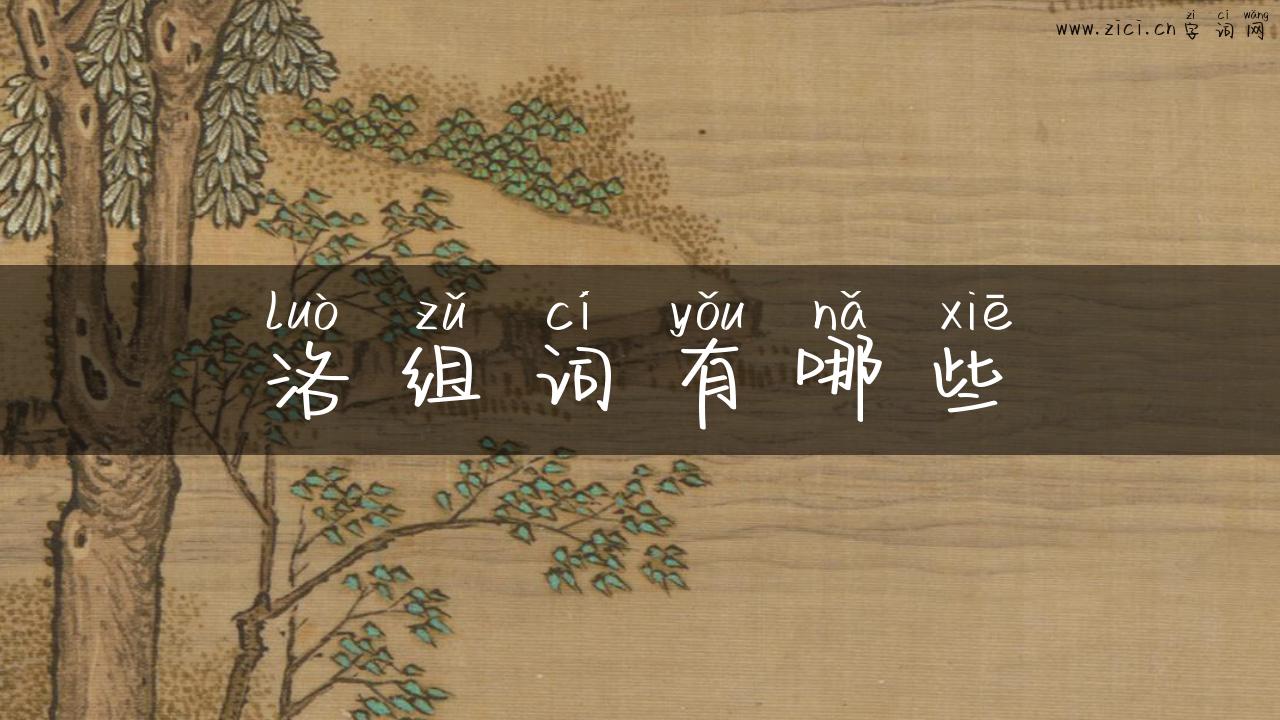 zì cí wǎng
www.zici.cn 字词网
luò zǔ cí yǒu nǎ xiē
洛组词有哪些